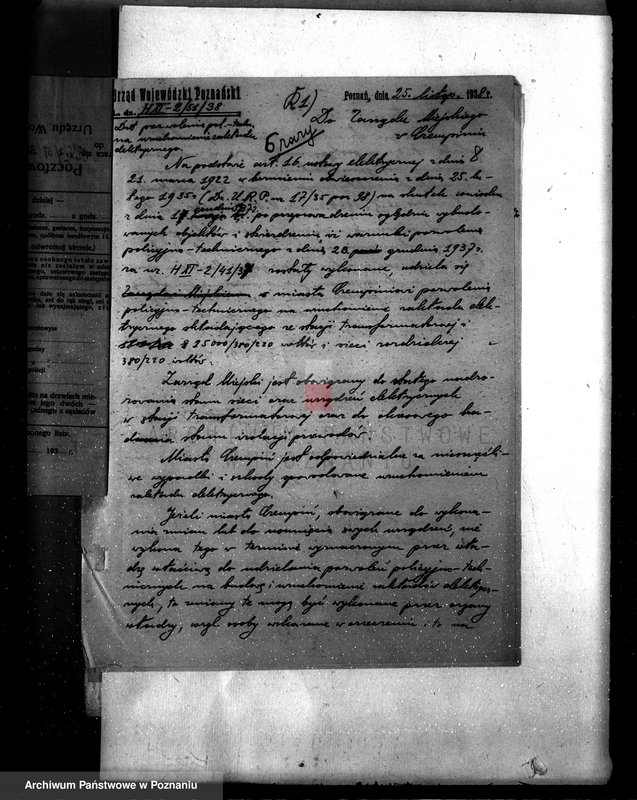 Urząd Wojewódzki Poznański
L. dz. H II-2/51/38
Poznań, dnia 25. listop. 1938 r.
Do Zarządu Miejskiego
w Czempiniu
6 razy
Dot. pozwolenia pol.-techn.
na uruchomienie zakładu
elektrycznego.
Na podstawie art. 16 ustawy elektrycznej z dnia
21. marca 1922 w brzmieniu obwieszczenia z dnia 25. lu-
tego 1935 (Dz. U.R.P. nr 17/35 poz. 98) na skutek wniosku
z dnia po przeprowadzeniu oględzin wybudo-
wanych objektów i stwierdzeniu iż warunki pozwolenia
policyjno-technicznego z dnia 28 grudnia 1937 r.
za nr. H II-2/41/37 zostały wykonane, udziela się
Zarządowi Miejskiemu w miasta Czempiniowi pozwolenia
policyjno-technicznego na uruchomienie zakładu elek-
trycznego składającego się ze stacji transformatornej i
25000/380/220 woltów i sieci rozdzielczej
380/220 woltów.
Zarząd Miejski jest obowiązany do stałego nadzo-
rowania stanu sieci oraz urządzeń elektrycznych
w stacji transformatornej oraz do okresowego ba-
dania stanu izolacji przewodów.
Miasto Czempiń jest odpowiedzialne za nieszczęśli-
we wypadki i szkody spowodowane uruchomieniem
zakładu elektrycznego.
Jeżeli miasto Czempiń, obowiązane do wykona-
nia zmian lub do usunięcia swych urządzeń, nie
wykona tego w terminie wyznaczonym przez wła-
dzę właściwą do udzielania pozwoleń policyjno-tech-
nicznych na budowę i uruchomienie zakładów elektry-
cznych, to zmiany te mogą być wykonane przez organy
władzy, wzgl. osoby wskazane w orzeczeniu i to na
Urzędu Wo
Pocztow
dzisiaj —
godz. a godz.
odwrotnej stronie.)
to na drzwiach mie-
je jego dwóch —
jednego z sąsiadów
193 r.
ARCHIWUM PAŃSTWOWE
W POZNANIU
Archiwum Państwowe w Poznaniu